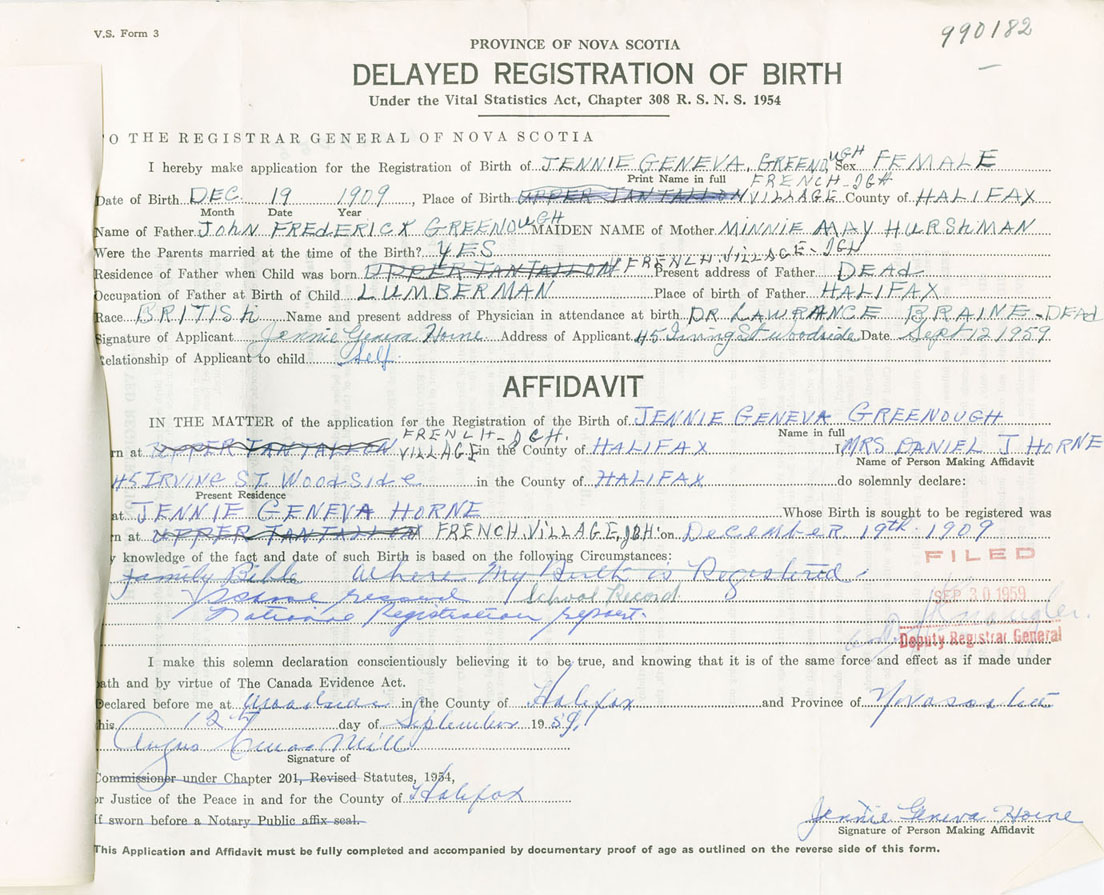 V.S. Form 3
990182
PROVINCE OF NOVA SCOTIA
DELAYED REGISTRATION OF BIRTH
Under the Vital Statistics Act, Chapter 308 R. S. N. S. 1954
O THE REGISTRAR GENERAL OF NOVA SCOTIA
I hereby make application for the Registration of Birth of JENNIE GENEVA, GREENOUGH Sex FEMALE
Print Name in full
FRENCH JGH
Date of Birth DEC. 19 1909, Place of Birth UPPER TANTALLON VILLAGE County of HALIFAX
Month Date Year
Name of Father JOHN FREDERICK GREENOUGH MAIDEN NAME of Mother MINNIE MAY HURSHMAN
Were the Parents married at the time of the Birth? YES
Residence of Father when Child was born UPPER TANTALLON FRENCH VILLAGE JGH Present address of Father DEAD
Occupation of Father at Birth of Child LUMBERMAN Place of birth of Father HALIFAX
Race BRITISH Name and present address of Physician in attendance at birth DR LAWRANCE BRAINE - DEAD
Signature of Applicant Jennie Geneva Horne Address of Applicant 45 Irving St Woodside Date Sept 12 1959
Relationship of Applicant to child Self
AFFIDAVIT
IN THE MATTER of the application for the Registration of the Birth of JENNIE GENEVA GREENOUGH
Name in full
FRENCH JGH.
rn at UPPER TANTALLON VILLAGE in the County of HALIFAX I MRS DANIEL J HORNE
Name of Person Making Affidavit
45 IRVINE ST. WOODSIDE in the County of HALIFAX do solemnly declare:
Present Residence
at JENNIE GENEVA HORNE Whose Birth is sought to be registered was
rn at UPPER TANTALLON FRENCH VILLAGE, JGH. on DECEMBER 19th 1909
y knowledge of the fact and date of such Birth is based on the following Circumstances:
Family Bible Where My Birth is Registered.
FILED
School Record
SEP 30 1959
National Registration report.
Deputy Registrar General
I make this solemn declaration conscientiously believing it to be true, and knowing that it is of the same force and effect as if made under
ath and by virtue of The Canada Evidence Act.
Declared before me at Woodside in the County of Halifax and Province of Nova Scotia
his 12th day of September 1959.
Angus
Signature of
Commissioner under Chapter 201, Revised Statutes, 1954,
or Justice of the Peace in and for the County of Halifax
If sworn before a Notary Public affix seal.
Jennie Geneva Horne
Signature of Person Making Affidavit
This Application and Affidavit must be fully completed and accompanied by documentary proof of age as outlined on the reverse side of this form.